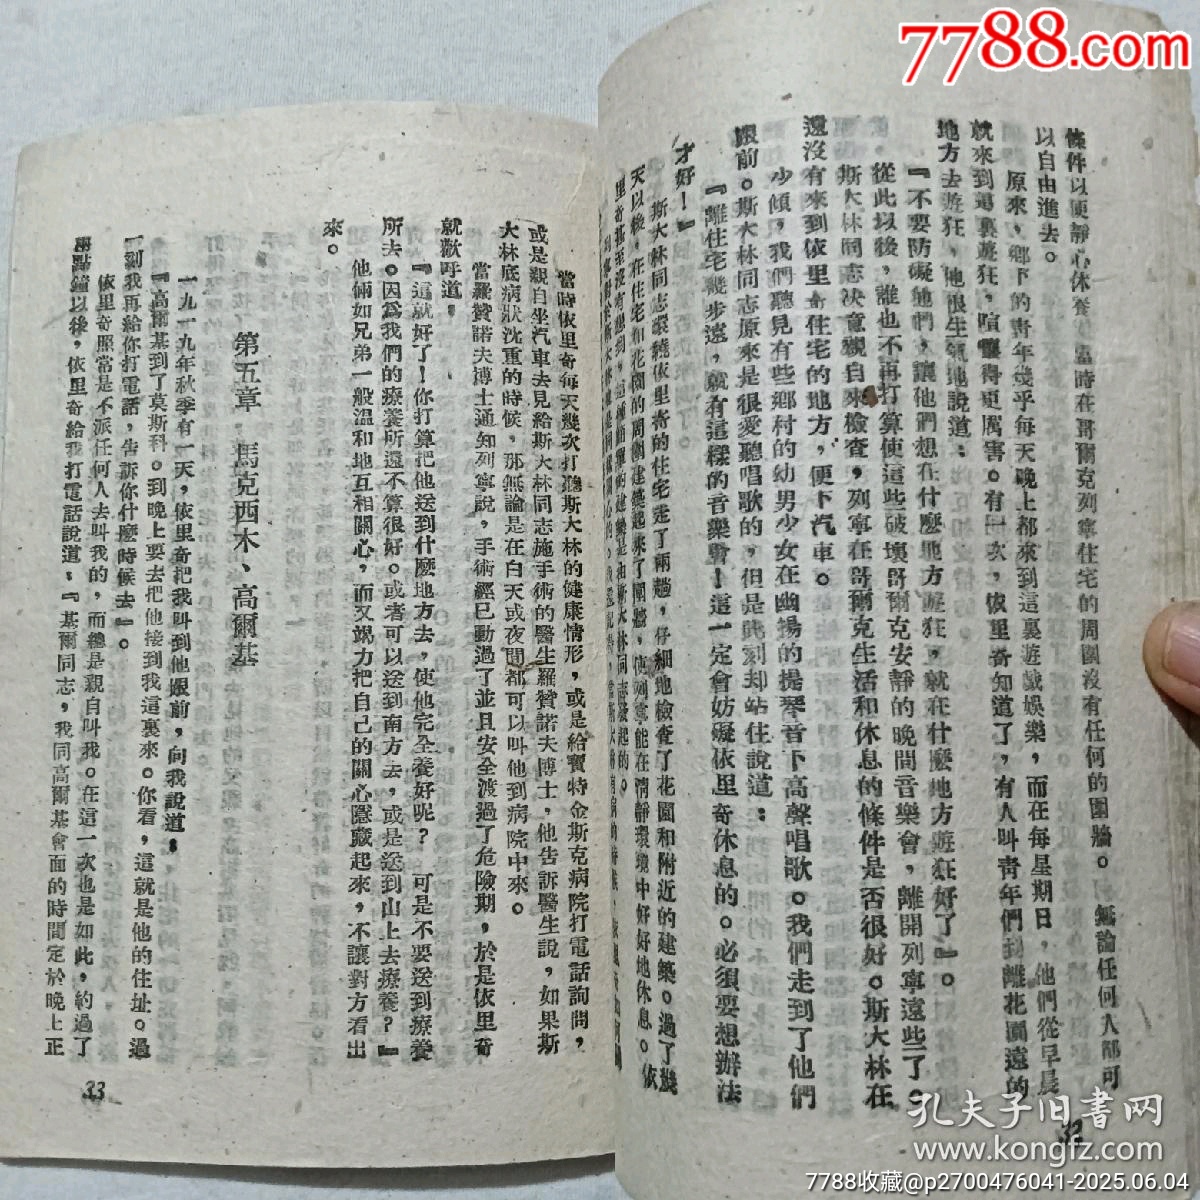 7788.com
條件以便靜心休養。當時在哥爾克列寧住宅的周圍沒有任何的圍牆。無論任何人都可
以自由進去。
原來，鄉下的青年幾乎每天晚上都來到這裏遊戲娛樂，而在每星期日，他們從早晨
就來到這裏遊玩，喧嚷得更厲害。有一次，依里奇知道了，有人叫青年們到離花園遠的
地方去遊玩，他很生氣地說道：
『不要防礙他們，讓他們想在什麼地方遊玩，就在什麼地方遊玩好了』。
從此以後，誰也不再打算使這些破壞哥爾克安靜的晚間音樂會，離開列寧遠些了。
斯大林同志決意親自來檢查，列寧在哥爾克生活和休息的條件是否很好。斯大林在
還沒有來到依里奇住宅的地方，便下汽車。
少傾，我們聽見有些鄉村的幼男少女在幽揚的提琴音下高聲唱歌。我們走到了他們
跟前。斯大林同志原來是很愛聽唱歌的，但是此刻却站住說道：
『離住宅幾步遠，就有這樣的音樂會！這一定會妨礙依里奇休息的。必須要想辦法
才好！』
斯大林同志環繞依里奇的住宅走了兩趟，仔細地檢查了花園和附近的建築。過了幾
天以後，在住宅和花園的周圍建築起來了圍牆，使列寧能在清靜環境中好好地休息。依
里奇甚至沒有想到，這種簡單的建築是由斯大林同志發起的。
32
當時依里奇每天幾次打聽斯大林的健康情形，或是給寶特金斯克病院打電話詢問，
或是親自坐汽車去見給斯大林同志施手術的醫生羅贊諾夫博士，他告訴醫生說，如果斯
大林底病狀沈重的時候，那無論是在白天或夜間都可以叫他到病院中來。
當羅贊諾夫博士通知列寧說，手術經已動過了並且安全渡過了危險期，於是依里奇
就歡呼道：
『這就好了！你打算把他送到什麼地方去，使他完全養好呢？　可是不要送到療養
所去。因爲我們的療養所還不算很好。或者可以送到南方去，或是送到山上去療養？』
他倆如兄弟一般溫和地互相關心，而又竭力把自己的關心隱藏起來，不讓對方看出
來。
第五章　馬克西木、高爾基
一九一九年秋季有一天，依里奇把我叫到他跟前，向我說道：
『高爾基到了莫斯科。到晚上要去把他接到我這裏來。你看，這就是他的住址。過
一刻我再給你打電話，告訴你什麼時候去』。
依里奇照常是不派任何人去叫我的，而總是親自叫我。在這一次也是如此，約過了
兩點鐘以後，依里奇給我打電話說道：『基爾同志，我同高爾基會面的時間定於晚上正
33
孔夫子旧書网
www.kongfz.com
7788收藏@p2700476041-2025.06.04